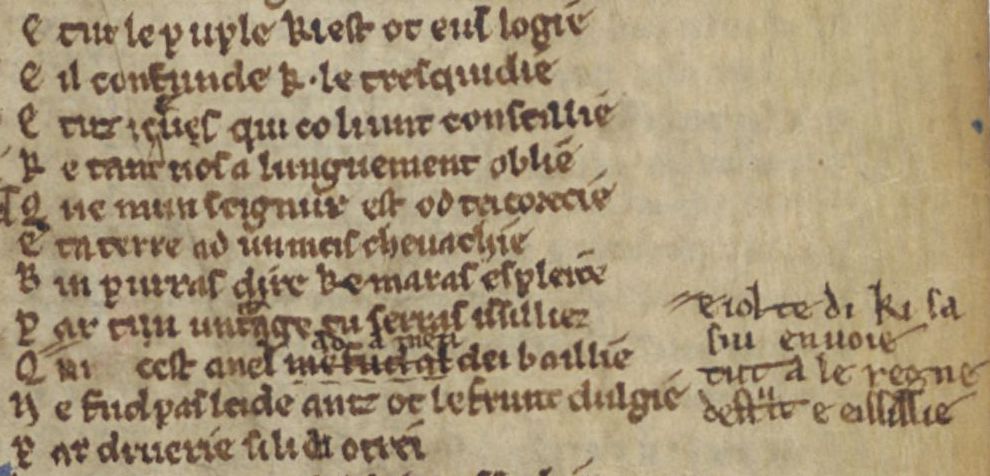 E tut le puple ki est ot eus logie
E il confunde k. le tresquidie
E tuz içues qui co liunt conseillie
K e tant nos a lunguement oblie
Q ue mun seignur est od tei corecie
E ta terre ad un meis chevachie
B in purras dire ke mar as espleitie
P ar tun untage tu serras issilliez
Q ui cest anel ad a men dei baillie
N e fud pas leide antz ot le frunt dulgie
P ar druerie si li di otrei
e iol te di ki sa
sui enuoie
tut a le regne
destruit e eissillie